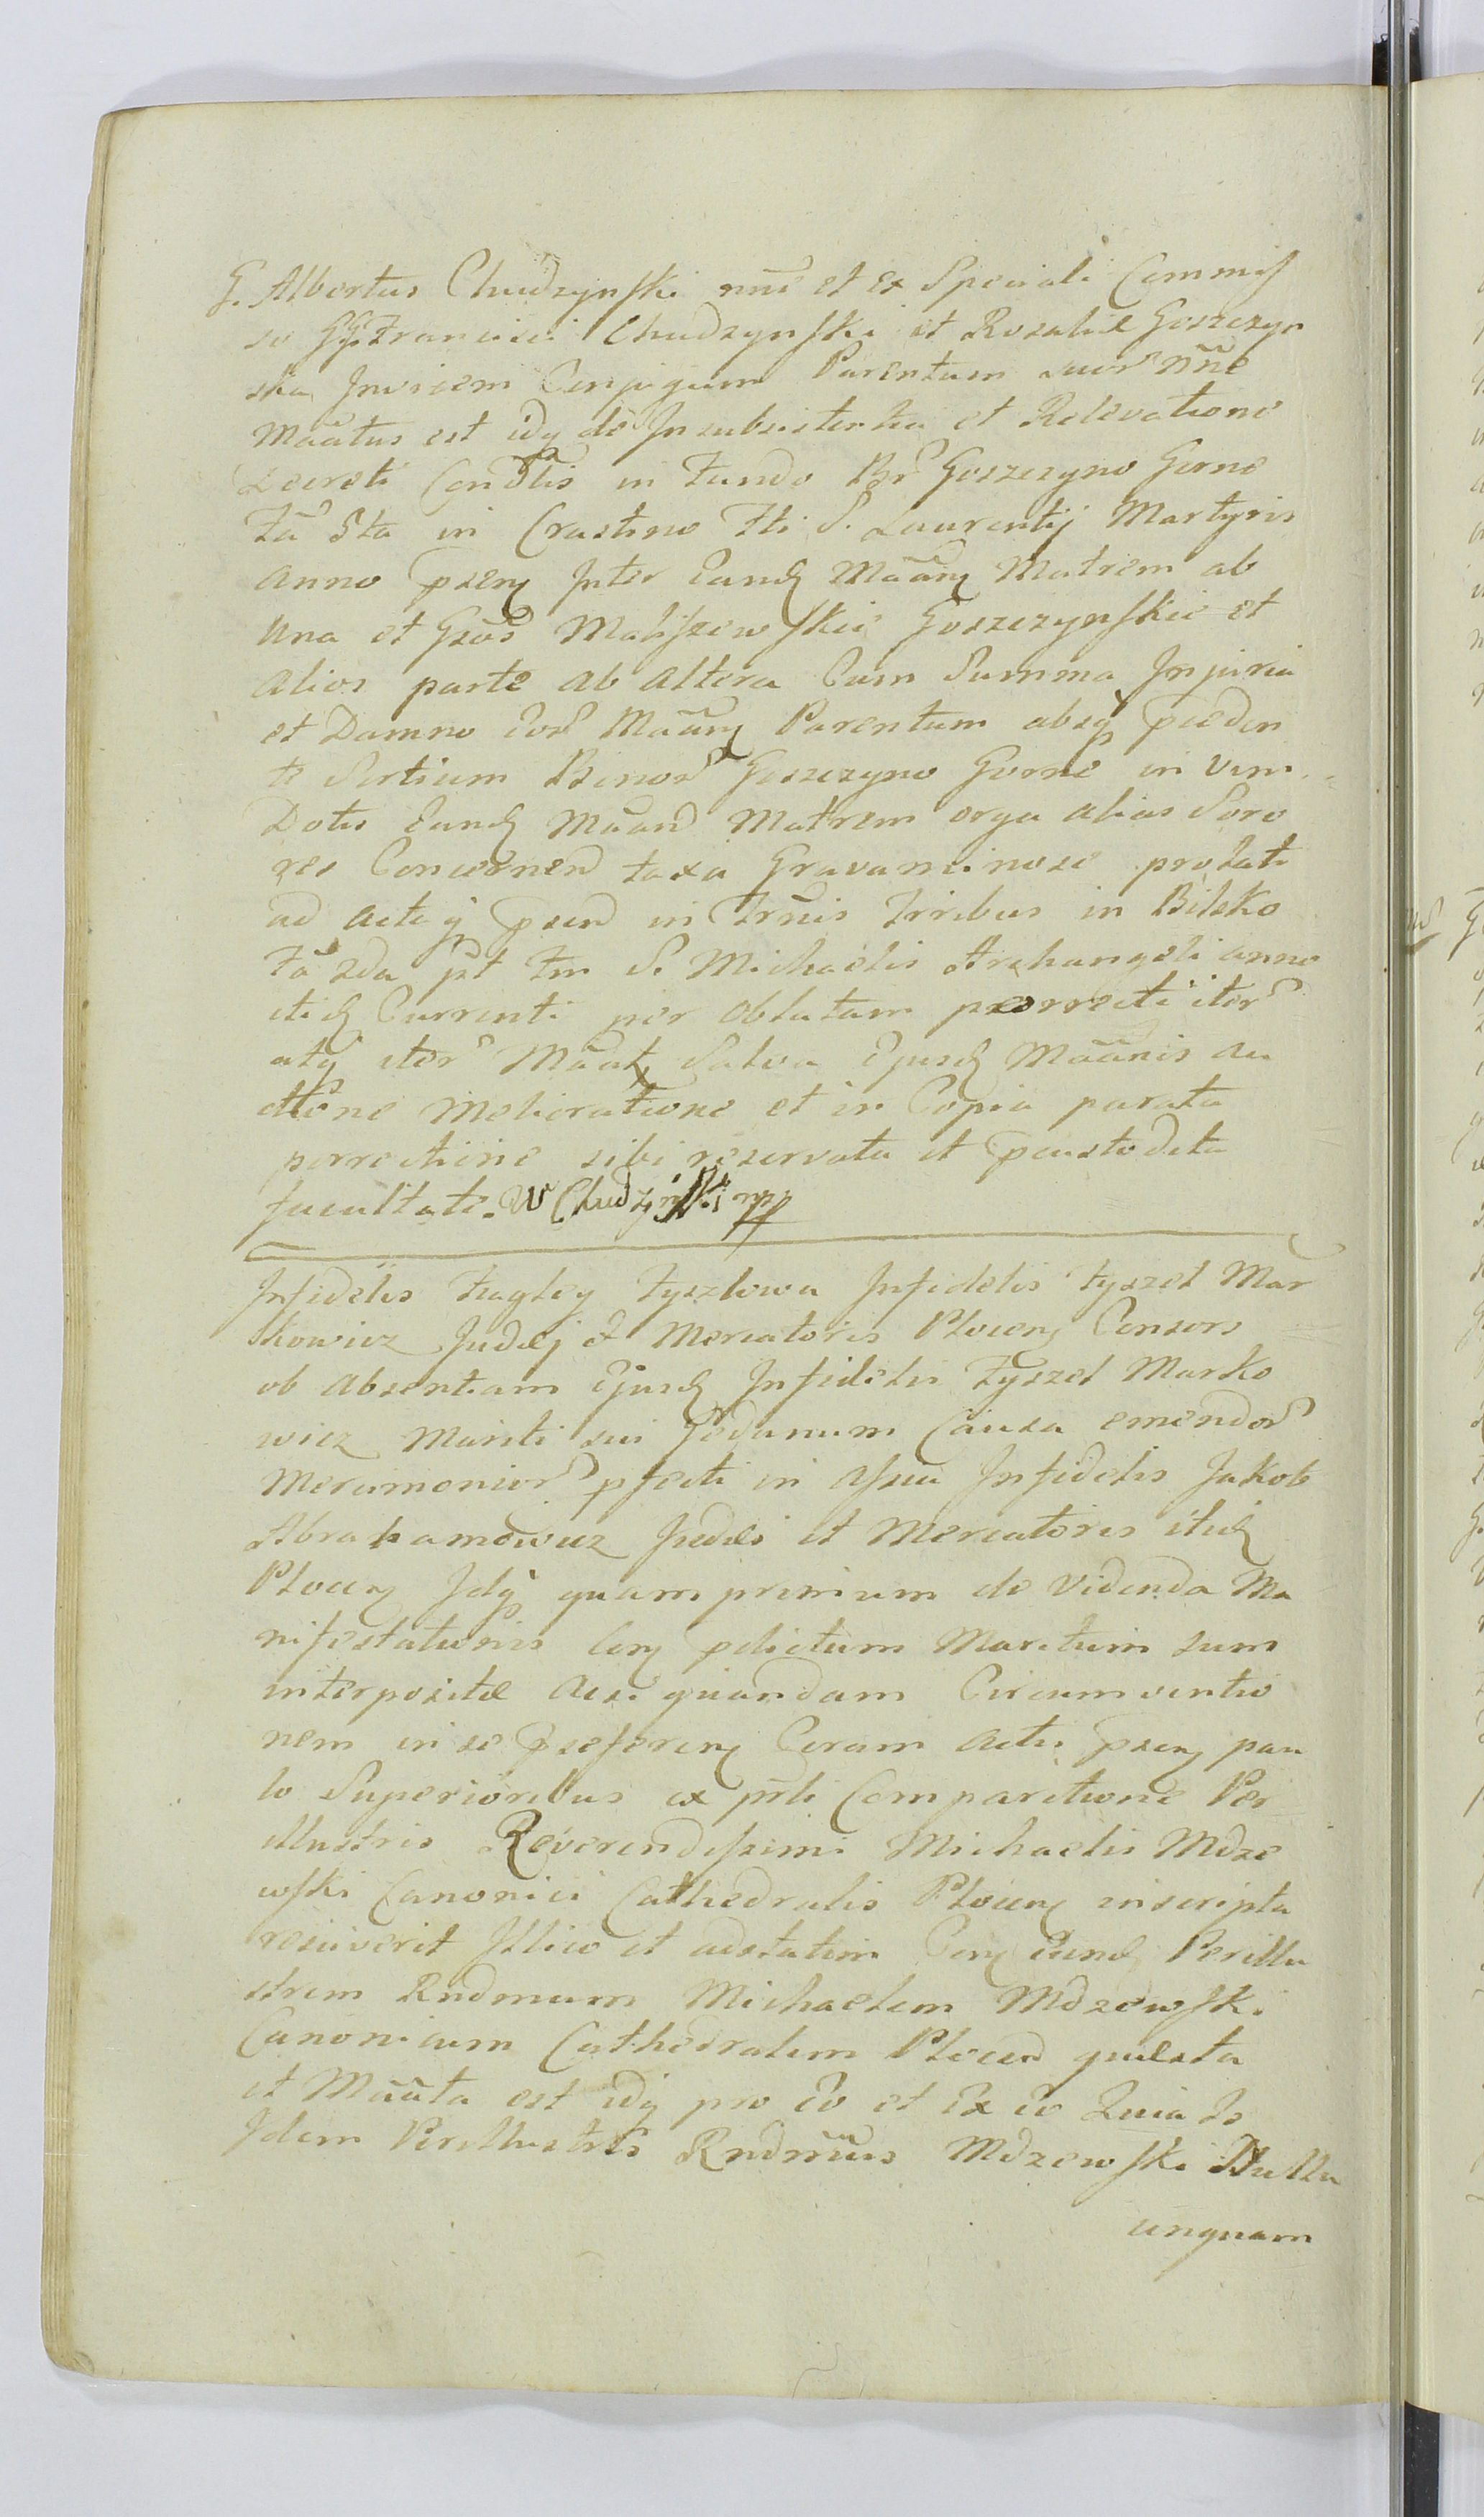 G. Albertus Chudzynski nne et ex Speciali Commis
so GG. Francisci Chudzynski et Rozaliæ Goszczyn
ska Invicem Conjugum Parentum suor nne
Maatus est idq de Insubsistentia et Relevatione
Decreti Condlis in Fundo Br Goszczyno Gorne
Fa 5ta in Crastino Fti S. Laurentij Martyris
Anno psenq Inter Eandq Maanq Matrem ab
una et Gsos Maliszewskie Goszczynskie et
alios parte ab altera Cum Summa Injuria
et Damno Eor Maanq Parentum absq præden
te Sortium Bonor Goszczyno Gorne in vim
Dotis Eandq Maand Matrem erga alias Soro
res Concernend taxa Gravaminose prolati
ad Actaq psend in Trnis Tribus in Bilsko
Fa 2da pt Fm S. Michaelis Archangeli anno
itidq Currenti per Oblatam porrecti iter
atq iter Maat, Salva Ejusdq Maanis au
ctione Melioratione et in Copia parata
porrectione sibi reservata et pcustodita
facultate. W Chudzynski mpp
Infidelis Fragley Fyszlowa Infidelis Fyszel Mar
kowicz Judæj et Mercatoris Plocenq Consors
ob Absentiam Ejusdq Infidelis Fyszel Marko
wicz Mariti sui Gedanum Causa emendor
Mercimonior pfecti in Assia Infidelis Jakob
Abrahamowicz Judæi et Mercatoris itidq
Plocenq Idq quam primum de Videnda Ma
nifestationis Conq pdictum Maritum suum
interpositæ Acsi quandam Circumventio
nem in se pseferenq Coram Actis psenq pau
lo Superioribus ex prli Comparitione Per
illustris Reverendissimi Michaelis Mdze
wski Canonici Cathedralis Plocenq inscripta
resciverit Illico et adstatim Conq Eundq Perillu
strem Rndmum Michaelem Mdzewski
Canonicum Cathedralem Plocend quæsta
et Maata est idq pro Eo et Ex Eo Quia Is
Idem Perillustris Rndmus Mdzewski Nulla
unquam